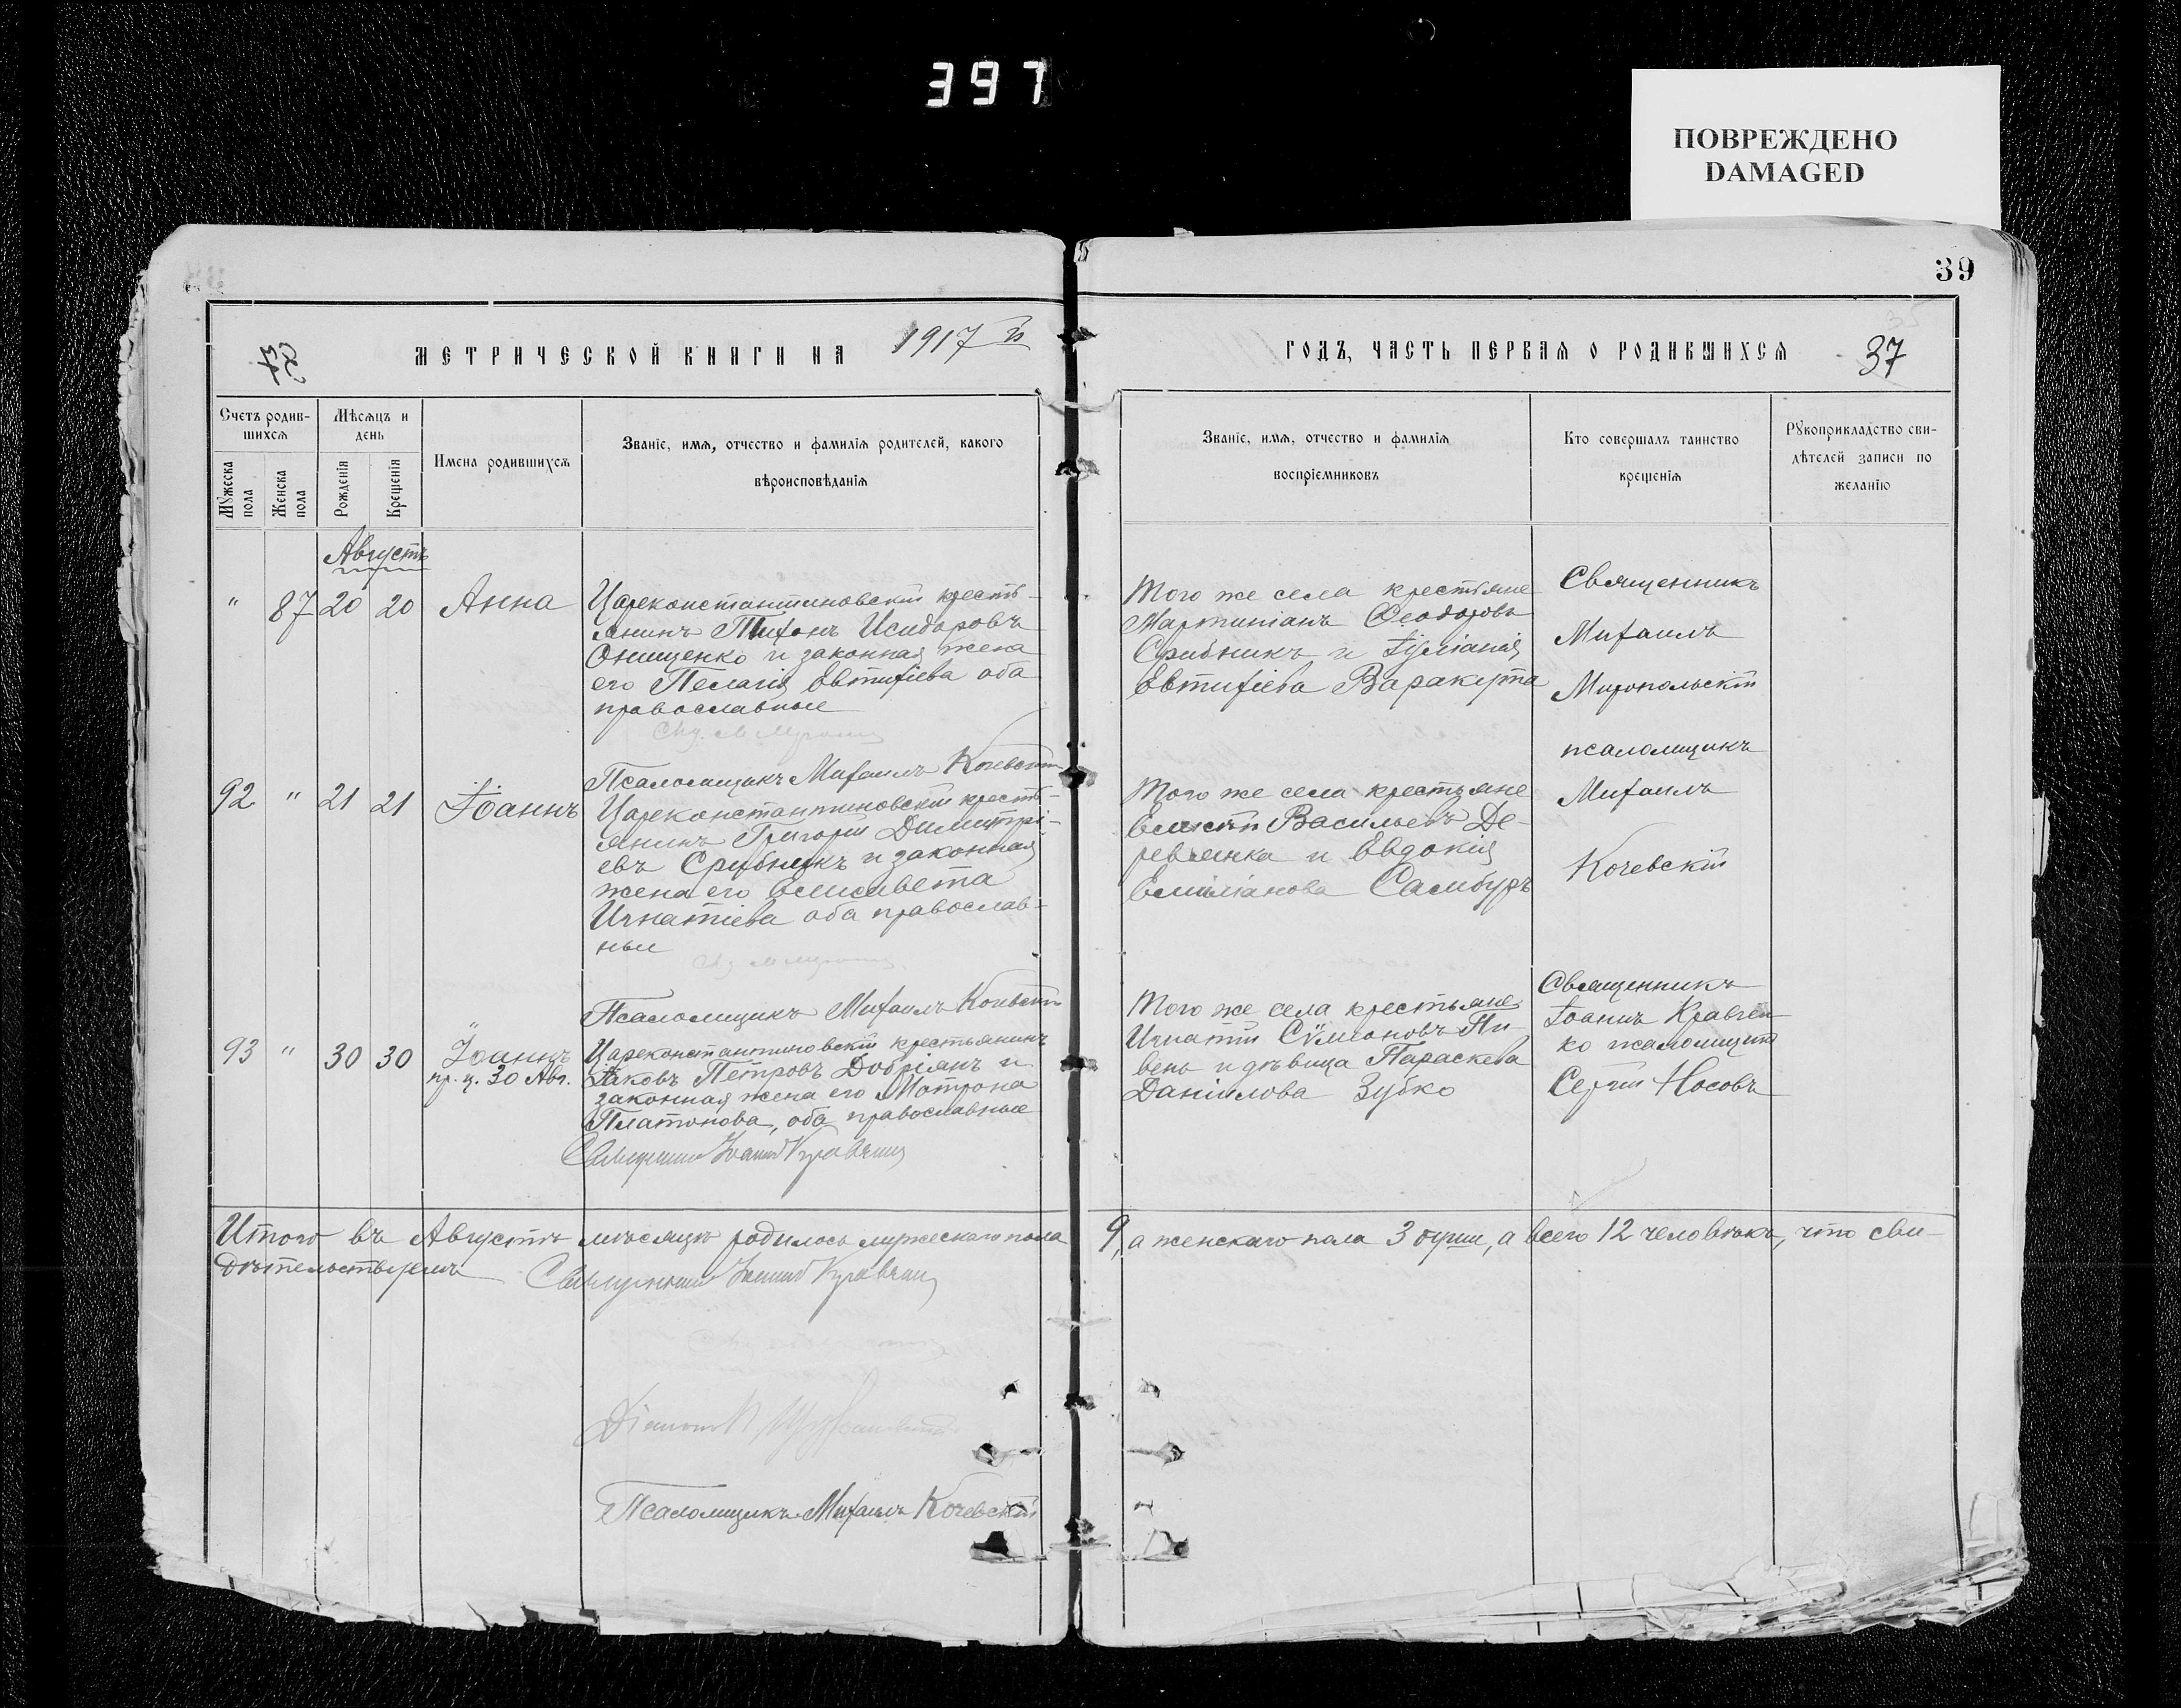 397
ПОВРЕЖДЕНО
DAMAGED
39
37
МЕТРИЧЕСКОЙ КНИГИ НА 1917 й
ГОДЪ, ЧАСТЬ ПЕРВАѦ О РОДИВШИХСѦ
37
Счетъ родив-
шихсѧ
Мужеска
пола
Женска
пола
Мѣсѧцъ и
день
Рожденїѧ
Крещенїѧ
Имена родившихсѧ
Званїе, имѧ, отчество и фамилїѧ родителей, какого
вѣроисповѣданїѧ
Званїе, имѧ, отчество и фамилїѧ
воспрїемниковъ
Кто совершалъ таинство
крещенїѧ
Рукоприкладство сви-
дѣтелей записи по
желанїю
Августъ
" 87 20 20 Анна
Цареконстантиновскій кресть-
янинъ Тихонъ Исидоровъ
Онищенко и законная жена
его Пелагія Евтихіева оба
православные
Псаломщикъ Михаилъ Кочевскій
Того же села крестьяне
Мартиніанъ Ѳеодоровъ
Срибникъ и Іуліанія
Евтихіева Варакута
Священникъ
Михаилъ
Миропольскій
псаломщикъ
Михаилъ
Кочевскій
92 " 21 21 Іоаннъ
Цареконстантиновскій кресть-
янинъ Григорій Димитрі-
евъ Срибникъ и законная
жена его Елисавета
Игнатіева оба православ-
ные
Псаломщикъ Михаилъ Кочевскій
Того же села крестьяне
Васильевъ Де-
ревянка и Евдокія
Емиліанова Самбуръ
93 " 30 30 Іоаннъ
пр. ц. 30 Авг.
Цареконстантиновскій крестьянинъ
Іаковъ Петровъ Добріянъ и
законная жена его Матрона
Платонова, оба православные
Священникъ Іоаннъ Кравченко
Того же села крестьяне
Игнатій Сѵмеоновъ Пи-
вень и дѣвица Параскева
Даніилова Зубко
Священникъ
Іоаннъ Кравчен-
ко псаломщикъ
Сергій Носовъ
Итого въ Августѣ мѣсяцѣ родилось мужескаго пола 9, а женскаго пола 3 души, а всего 12 человѣкъ, что сви-
дѣтельствуемъ Священникъ Іоаннъ Кравченко
Діаконъ
Псаломщикъ Михаилъ Кочевскій